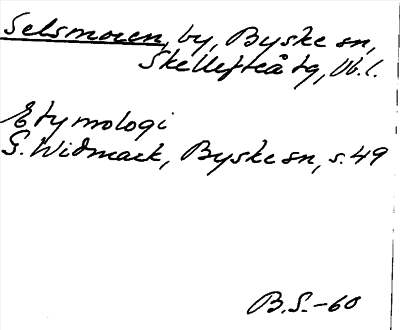 Selsmoren, by, Byske sn,
Skellefteå tg, Vb.l.
Etymologi
G. Widmark, Byske sn, s. 49
B.S.-60